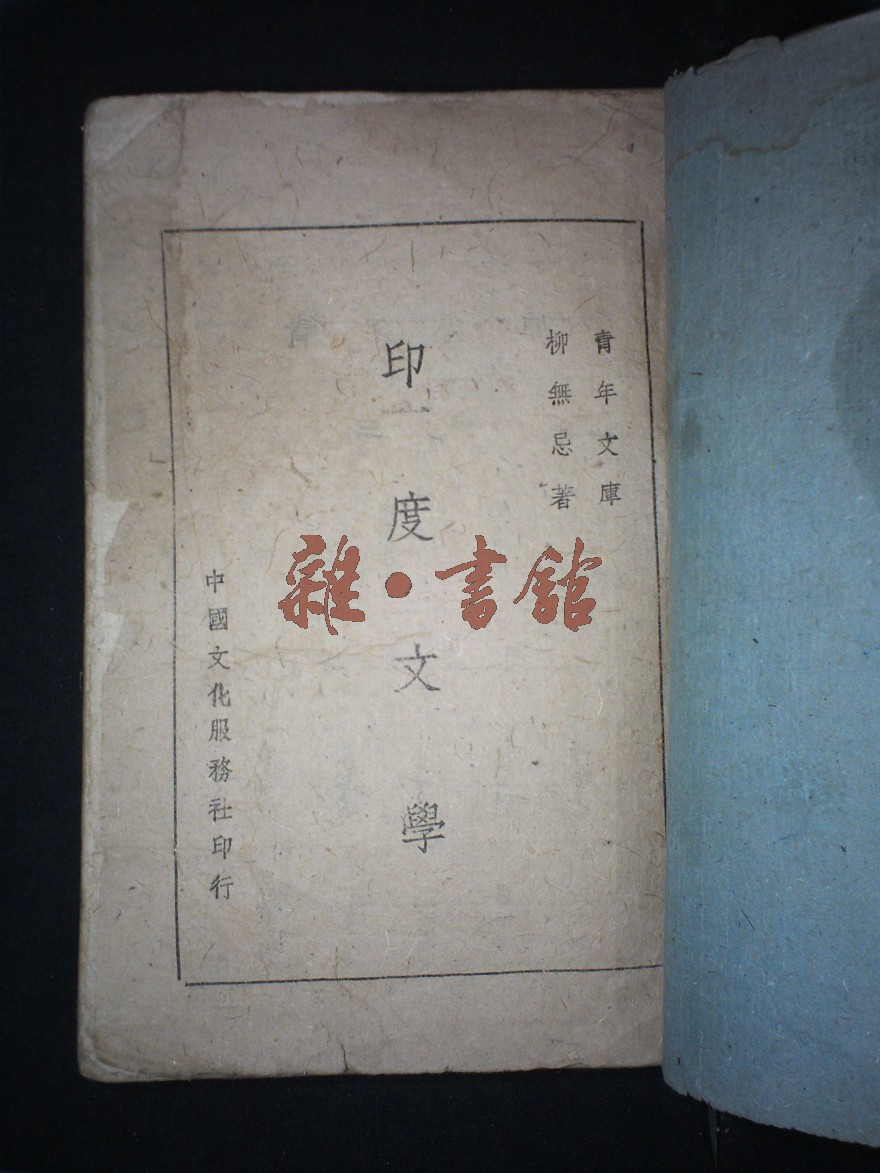 青年文庫
柳無忌著
印度文學
中國文化服務社印行
雜•書館